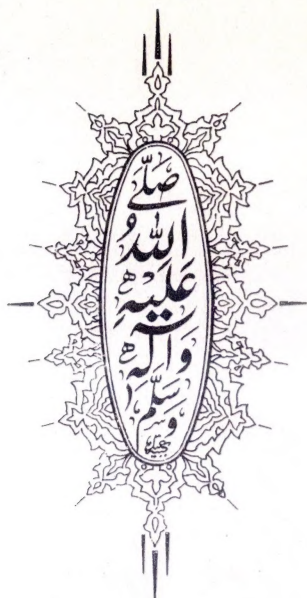 صَلَّى
اللّٰهُ
عَلَيْهِ
وَآلِهٖ
وَسَلَّم